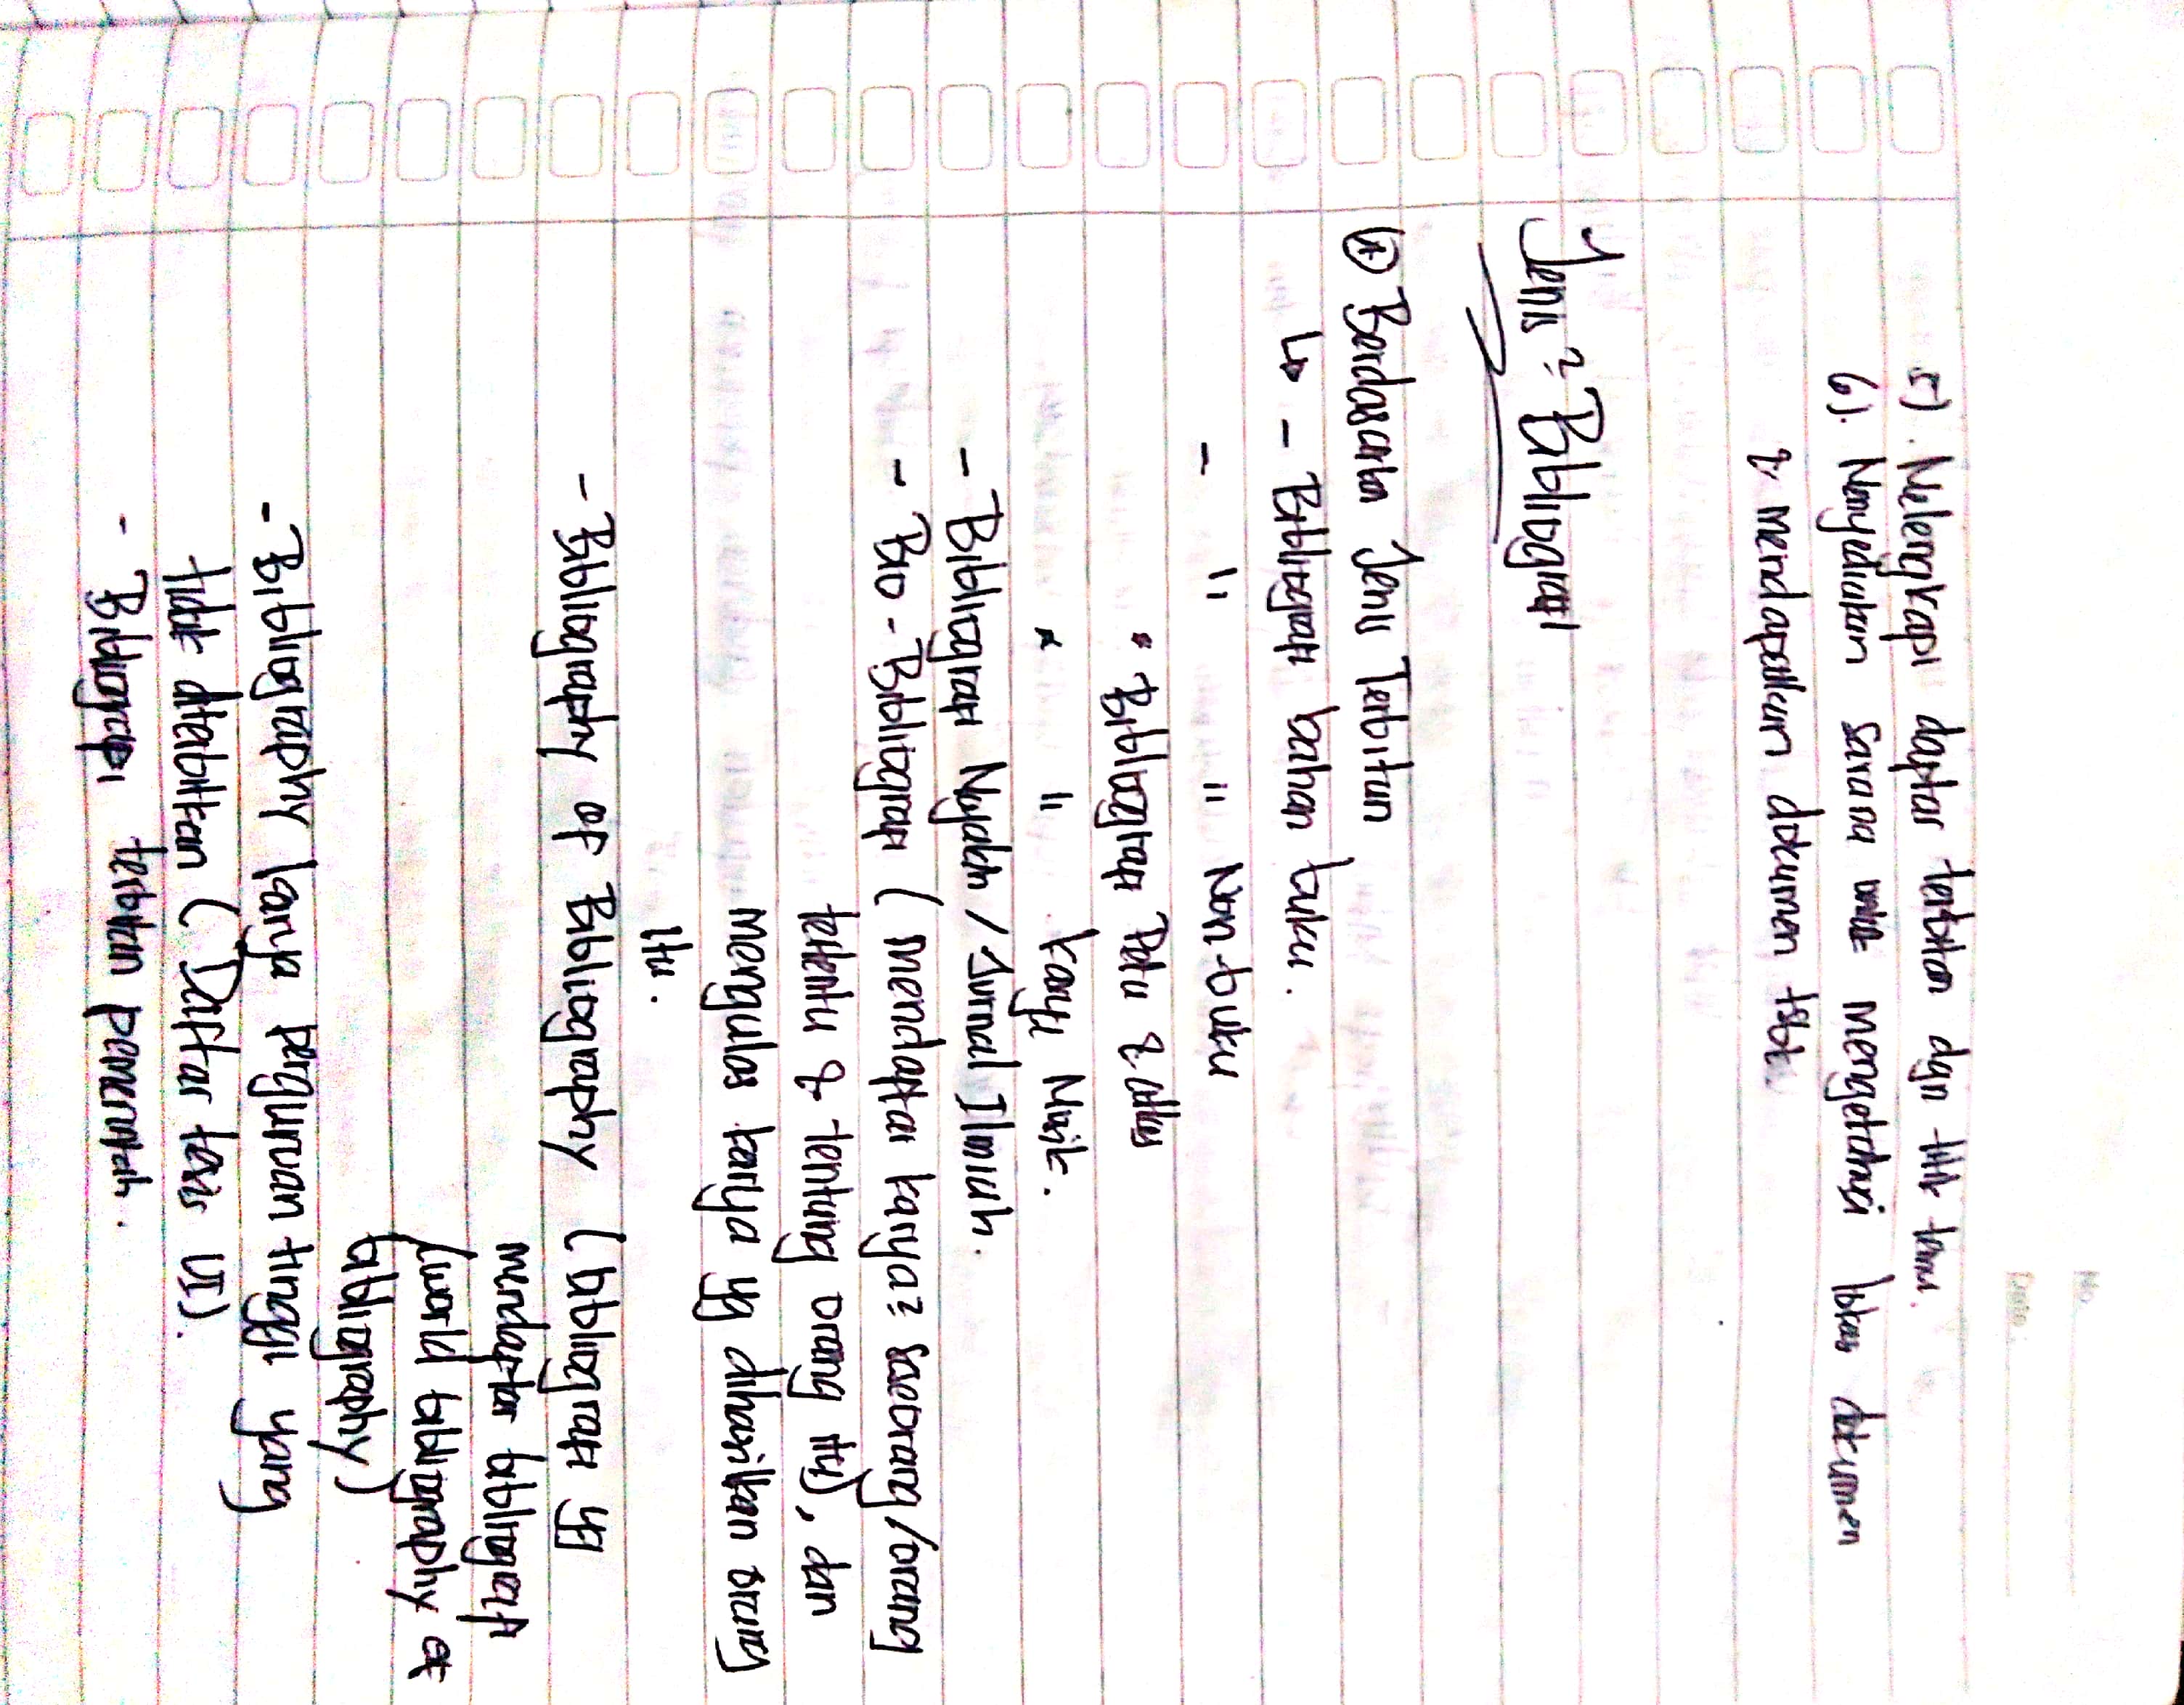 No.
Date :
5). Melengkapi daftar terbitan dgn titik temu.
6). Menyediakan sarana untuk mengetahui lokasi dokumen
& mendapatkan dokumen tsbt.
Jenis² Bibliografi
* Berdasarkan Jenis Terbitan
↳ - Bibliografi bahan buku.
- " " Non-buku
• Bibliografi Peta & atlas
* " Karya Musik.
- Bibliografi Majalah / Jurnal Ilmiah.
- Bio-Bibliografi (mendaftar karya² seseorang/orang
tertentu & tentang orang itu), dan
mengulas karya yg dihasilkan orang
itu.
- Bibliography of Bibliography (bibliografi yg
mendaftar bibliografi
(world bibliography of
bibliography)
- Bibliography karya perguruan tinggi yang
tidak diterbitkan (Daftar tesis UI).
- Bibliografi terbitan pemerintah.